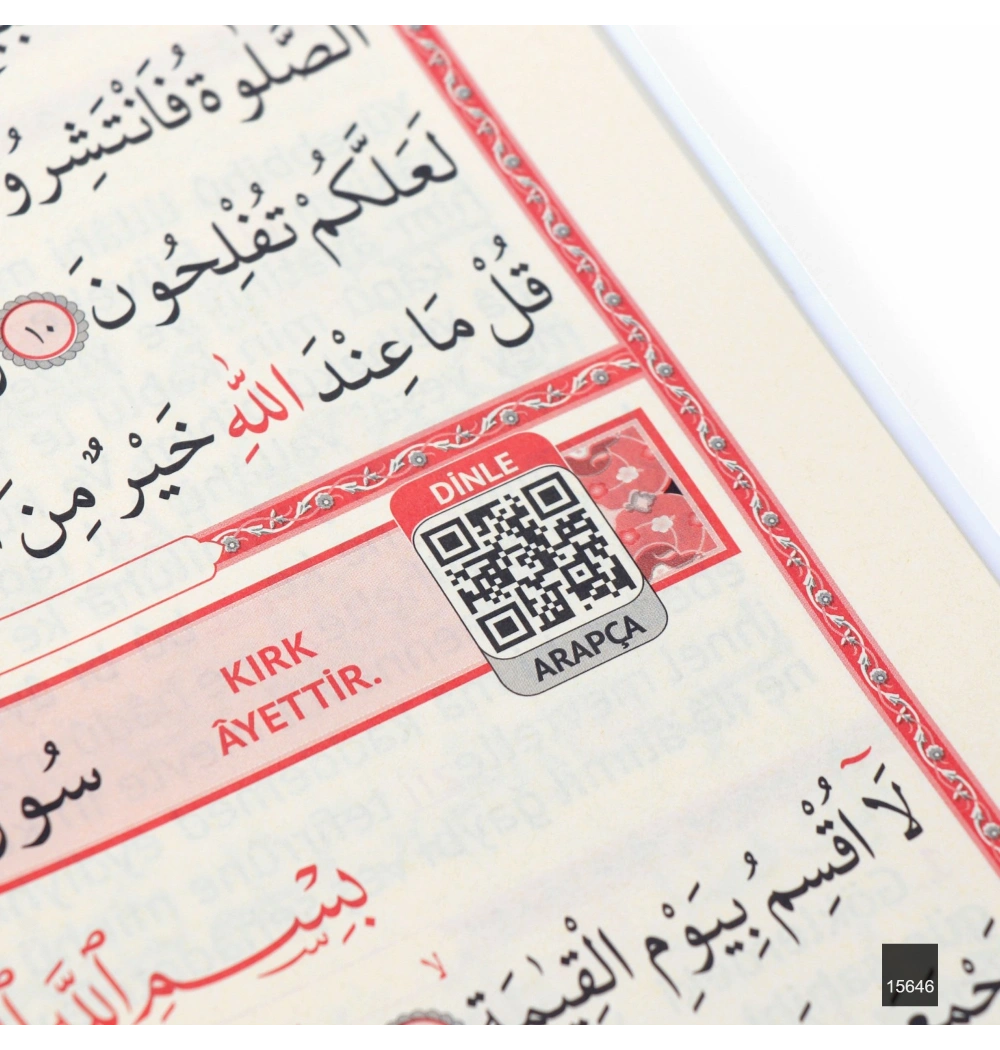 الصَّلٰوةُ فَانْتَشِرُو
لَعَلَّكُمْ تُفْلِحُونَ ١٠
قُلْ مَا عِنْدَ اللّٰهِ خَيْرٌ مِنَ
DİNLE
ARAPÇA
KIRK
ÂYETTİR.
سُور
بِسْمِ اللَّه
لَٓا اُقْسِمُ بِيَوْمِ الْقِيٰمَةِ
15646